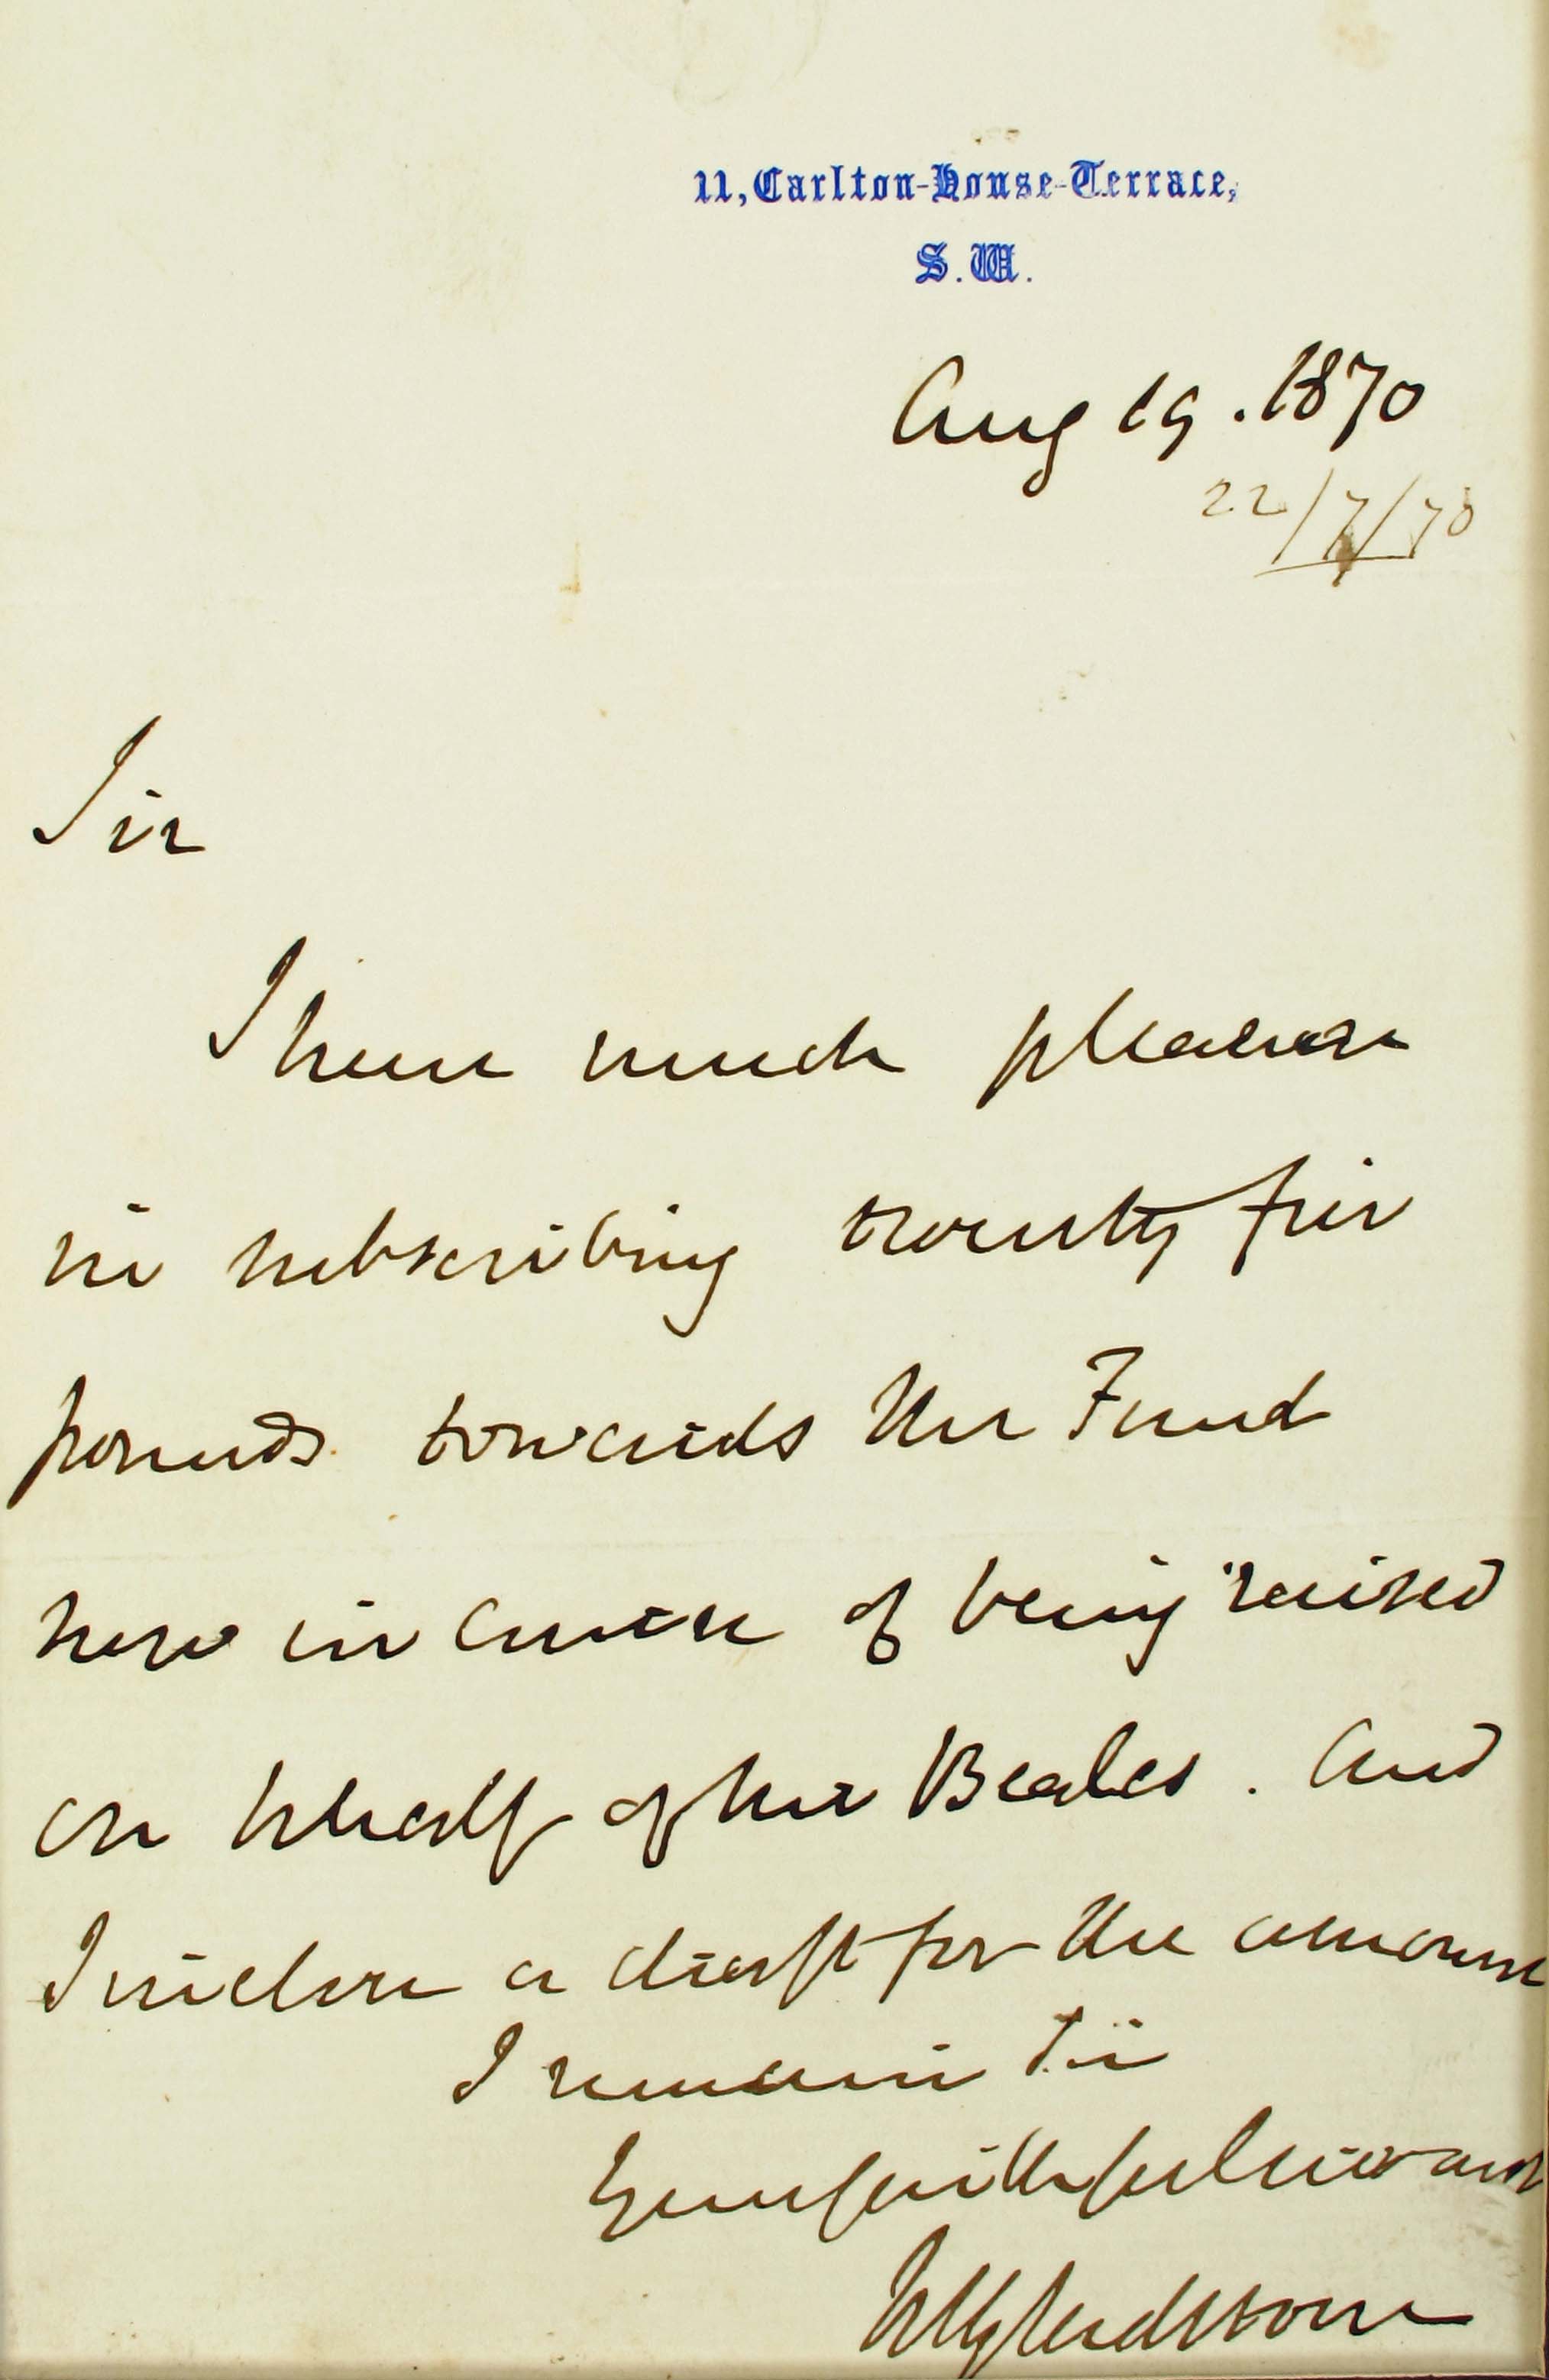 11, Carlton-House-Terrace,
S.W.
Aug 19. 1870
22/7/70
Sir
I have much pleasure
in subscribing twenty five
pounds towards the Fund
now in course of being raised
on behalf of Mr Beales. And
I inclose a draft for the amount
I remain Sir
Your faithful servant
WEGladstone